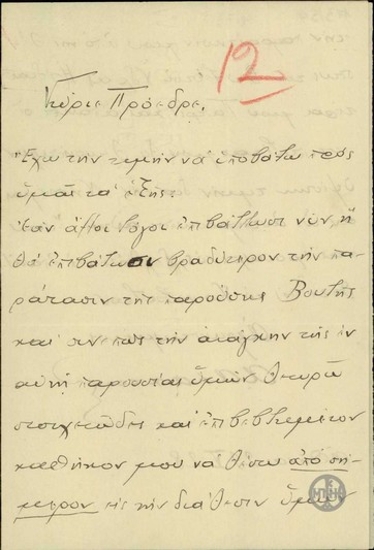 12
Κύριε Πρόεδρε,
Έχω την τιμήν να υποβάλω προς
υμάς τα εξής:
Εάν άλλοι λόγοι επιβάλλωσι νυν, ή
θα επιβάλωσιν βραδύτερον την πα-
ράτασιν της παρούσης Βουλής
και συνεπώς την ανάγκην της εν
αυτή παρουσίας υμών θεωρώ
στοιχειώδες και επιβεβλημένον
καθήκον μου να θέσω από σή-
μερον εις την διάθεσιν υμών